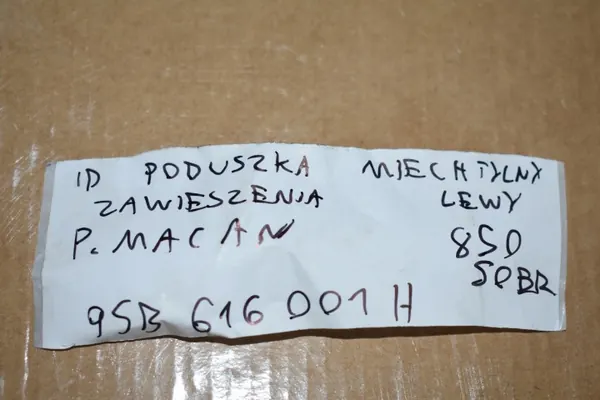 ID PODUSZKA MIECH TYLNY
ZAWIESZENIA LEWY
P. MACAN 850
SOBR
95B 616 001 H